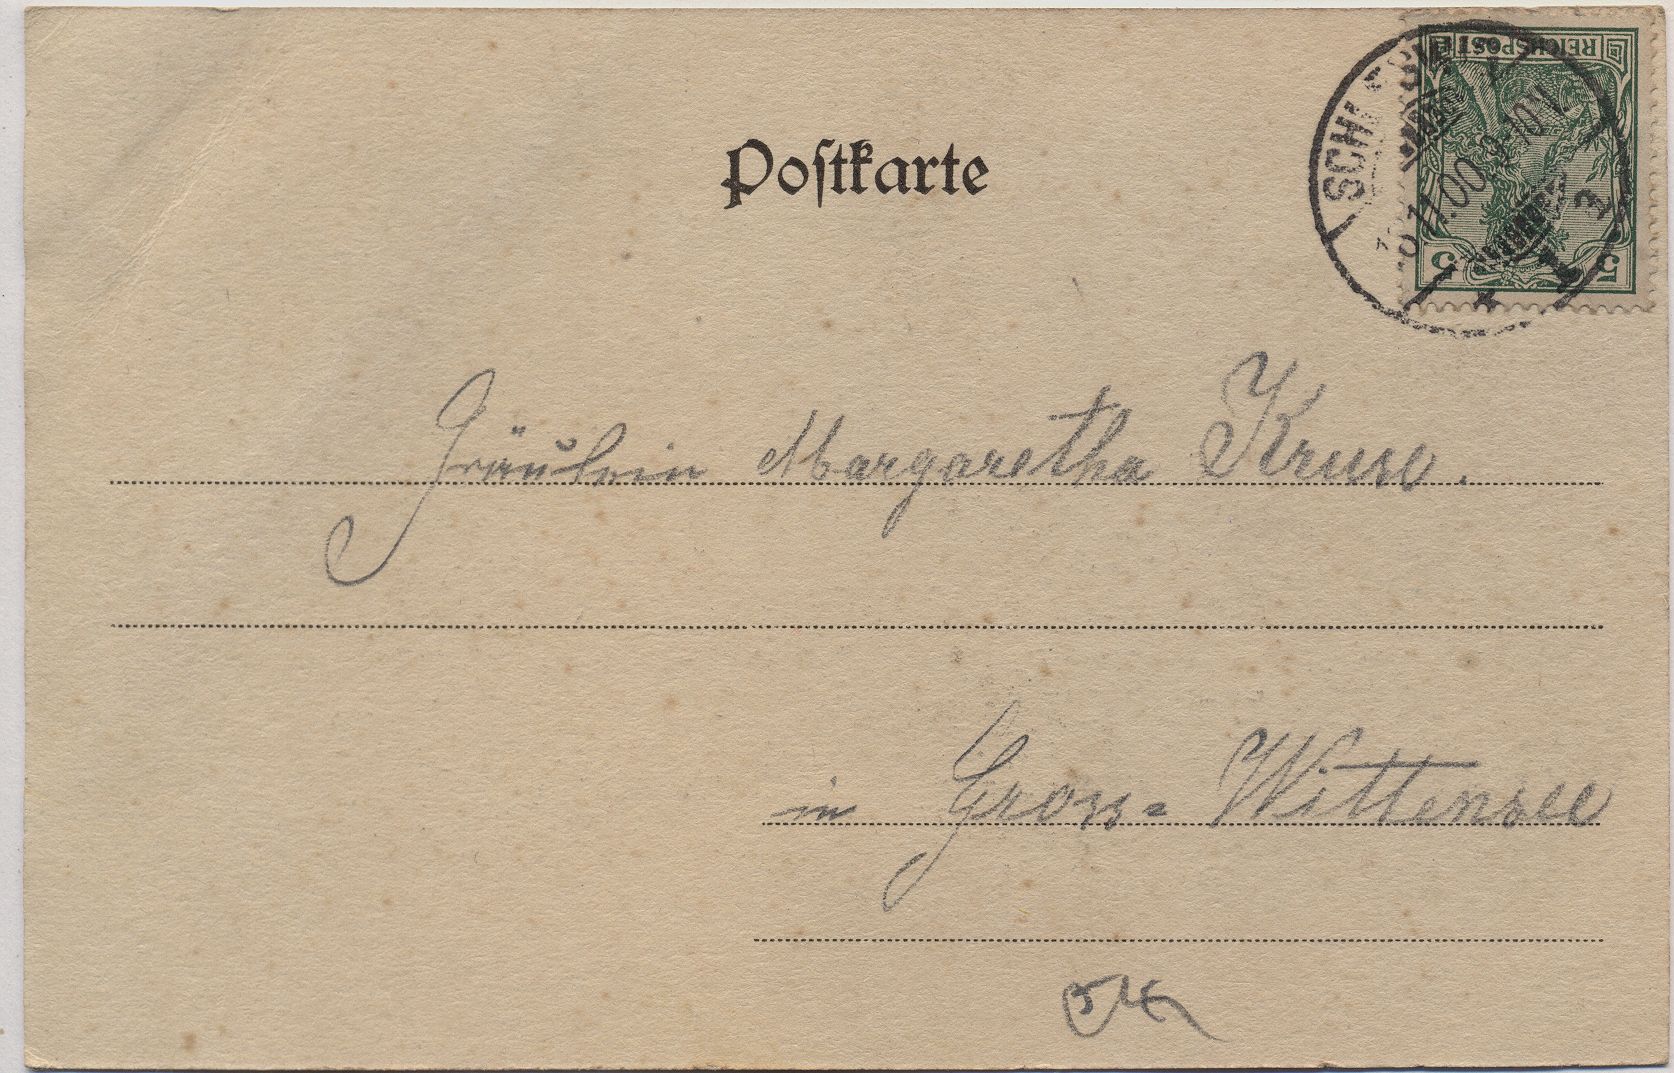 Postkarte
REICHSPOST
SCHLESWIG
11.00 9-10V.
5 5
Fräulein Margaretha Kruse.
in Gross-Wittensee